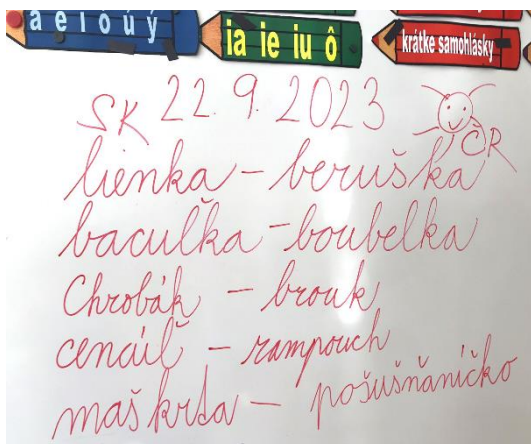 a e i o ú ý
ia ie iu ô
krátke samohlásky
SK 22. 9. 2023 ČR
lienka – beruška
baculka – boubelka
Chrobák – brouk
cencúľ – rampouch
maškrta – pošušňáníčko